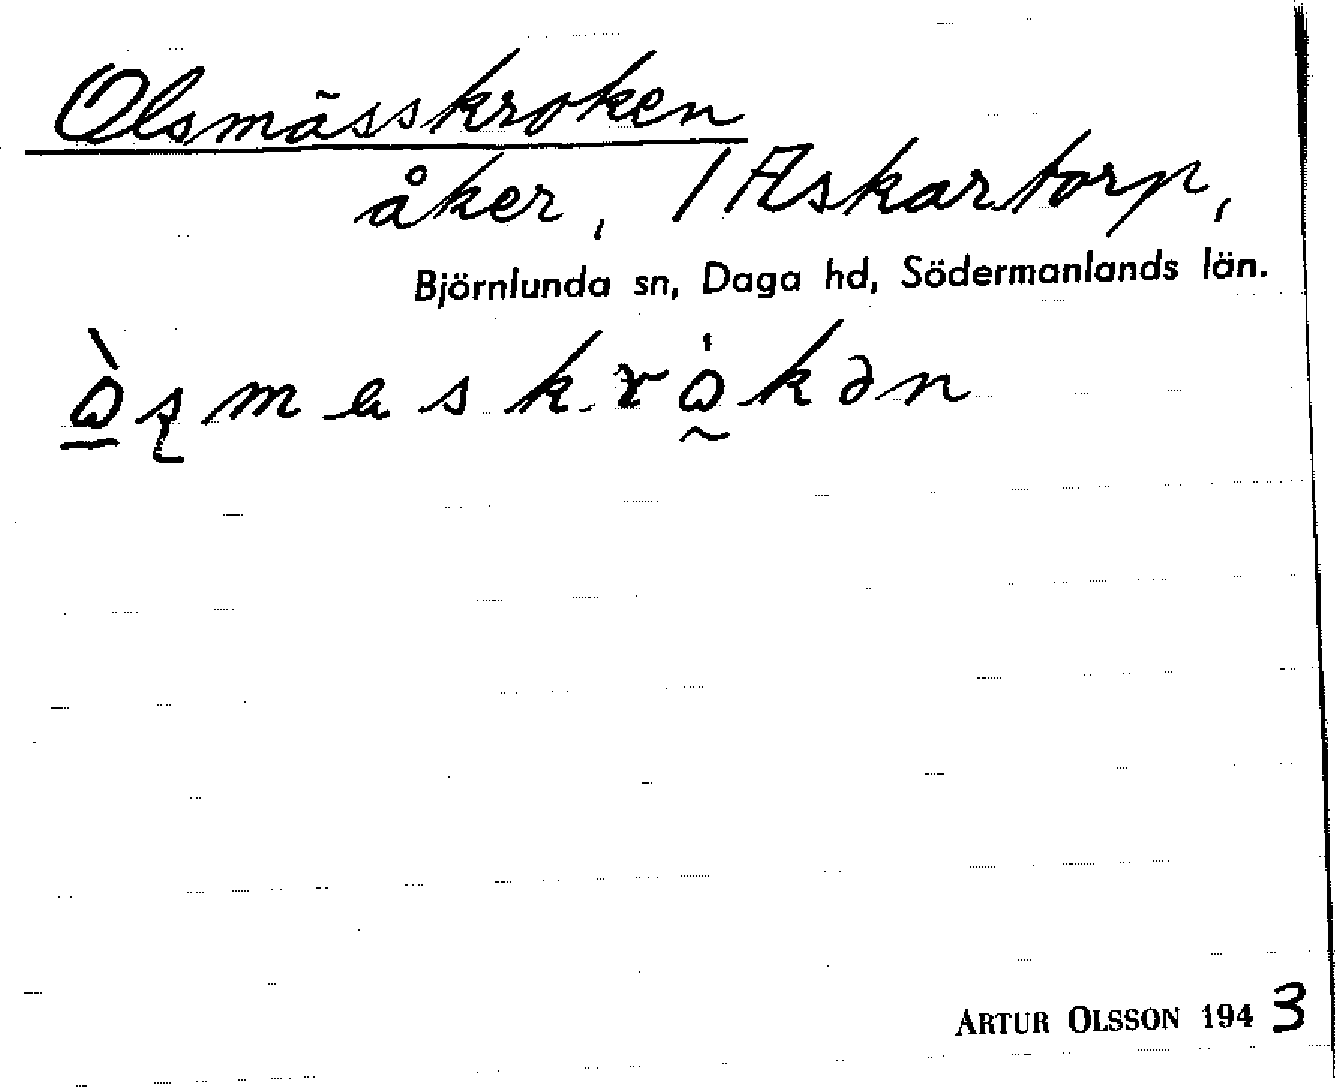 Olsmässkroken
åker, / Askartorp,
Björnlunda sn, Daga hd, Södermanlands län.
ARTUR OLSSON 1943